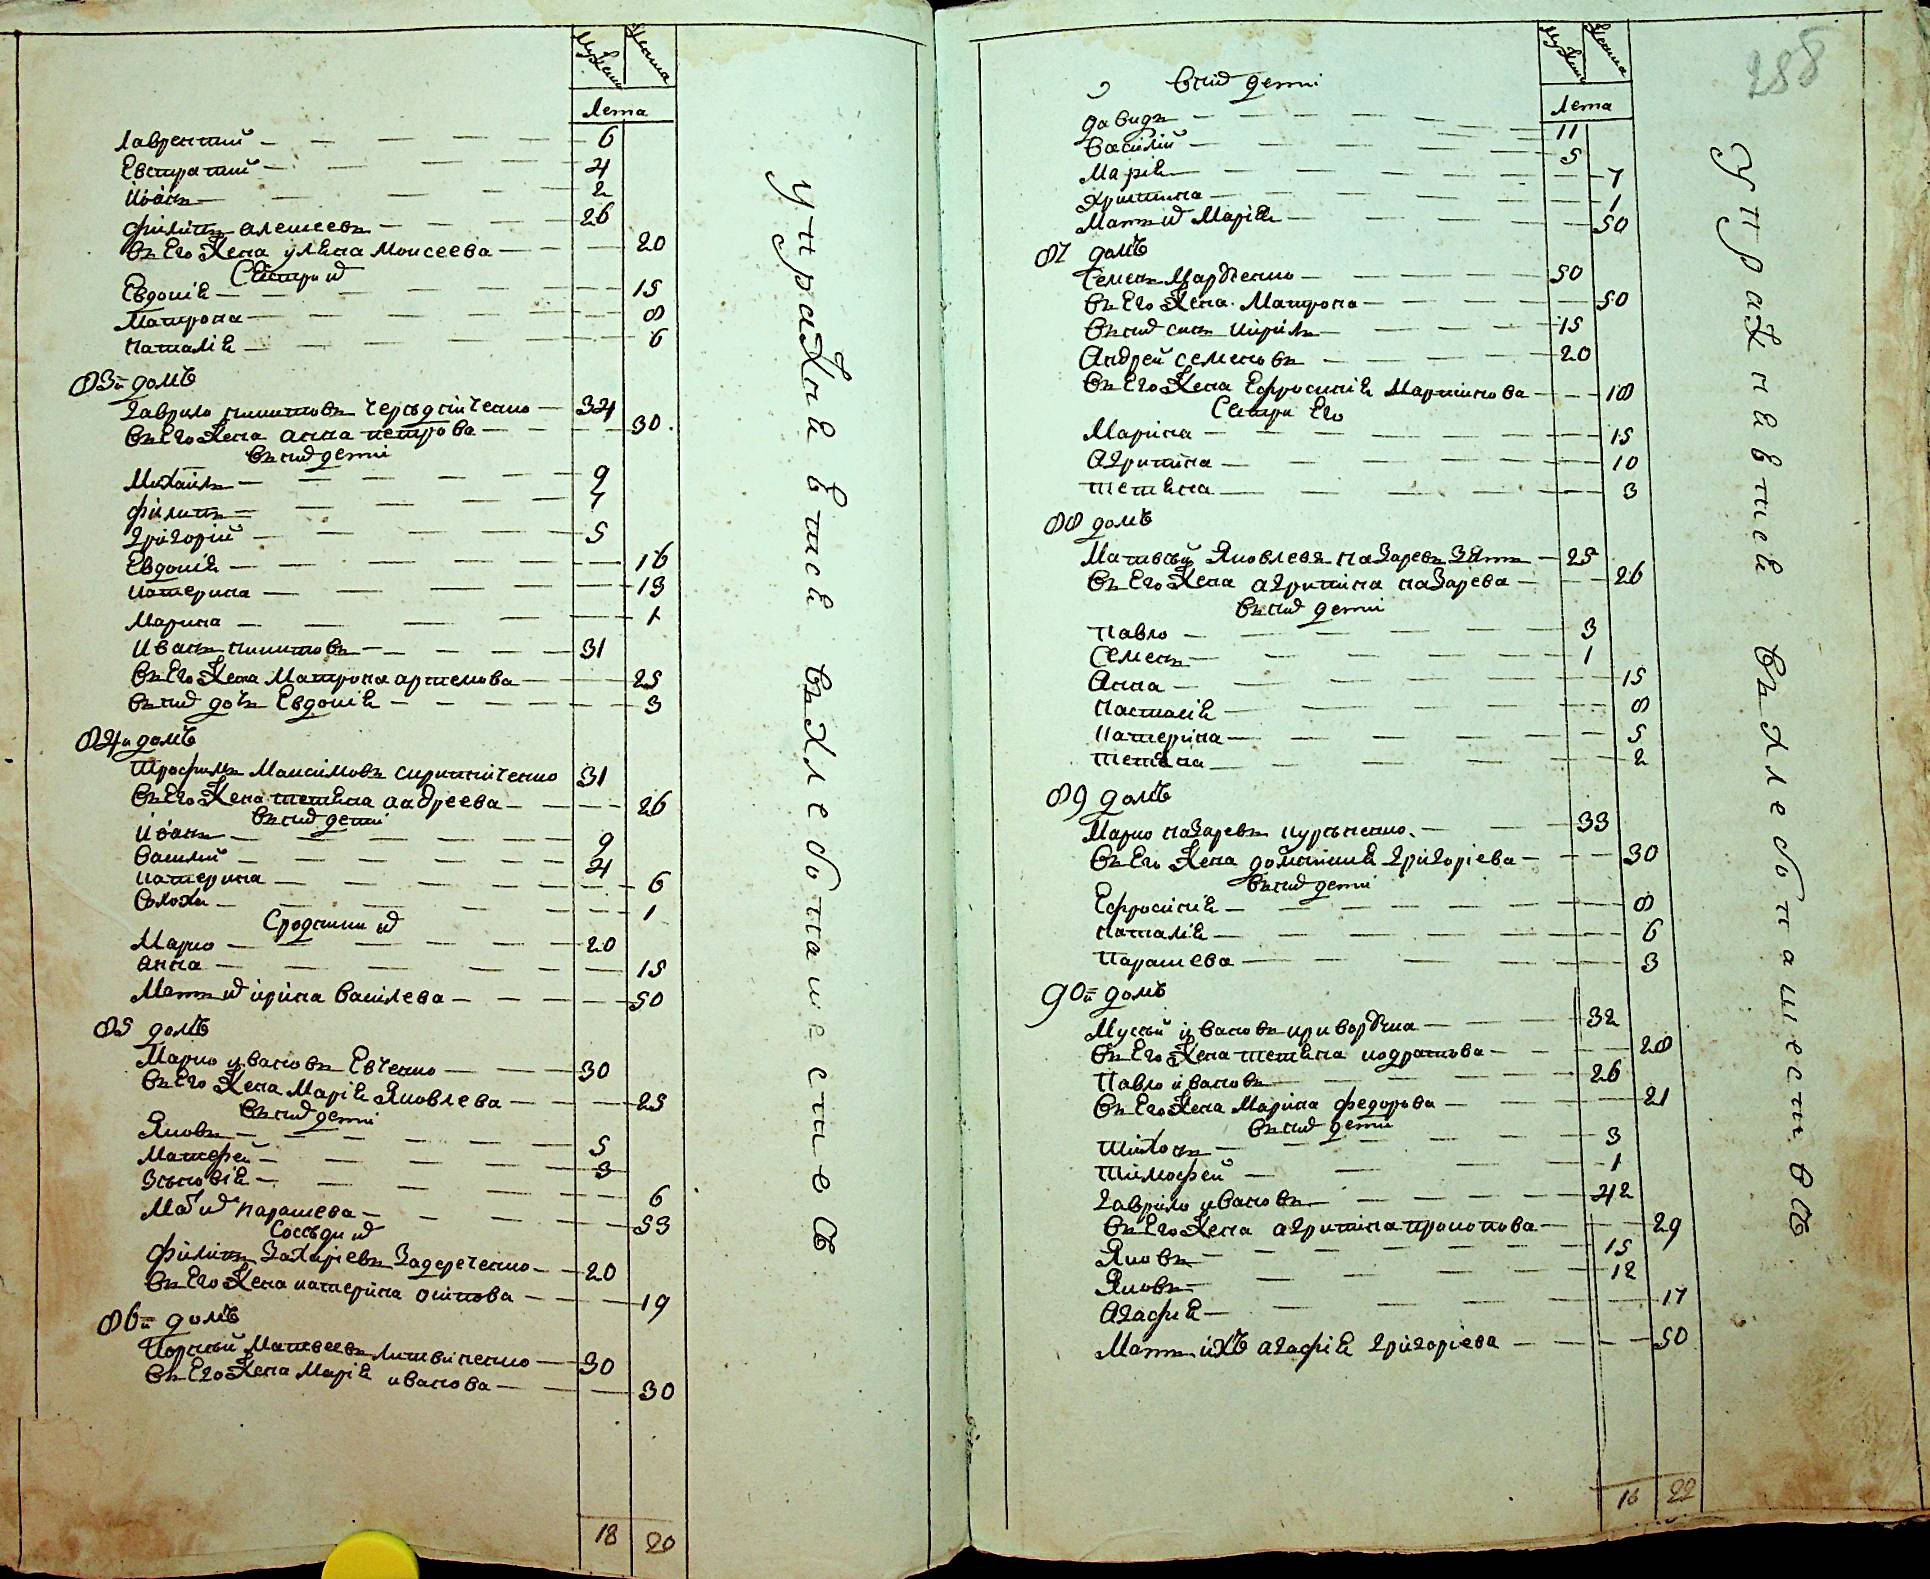 Мужеска
Женска
Лета
Лаврентий — 6
Евстратий — 4
Иоанъ — 2
филипъ алеѯеевъ — 26
въ Его Жена улияна Моисеева — 20
Сестри их
Евдокия — 15
Матрона — 8
Наталия — 6
83й домъ
Гаврило никитовъ — 34
въ Его Жена анна петрова — 30
въ них дети
Михаилъ — 9
филипъ — 7
Григорий — 5
Евдокия — 16
Катерина — 13
Марина — 1
Иванъ никитовъ — 31
въ Его Жена Матрона артемова — 25
въ них дочь Евдокия — 3
84й домъ
Трофимъ Максимовъ — 31
въ Его Жена тетяна андреева — 26
въ них дети
Иоанъ — 9
Василий — 4
Катерина — 6
Солоха — 1
Сродники их
Марко — 20
анна — 15
Мать их ирина Василева — 50
85 домъ
Марко ивановъ Евченко — 30
въ Его Жена Мария Яковлева — 25
въ них дети
Яковъ — 5
Матфей — 3
Зѣновия — 6
Мать их Парашева — 53
Соседи их
филипъ Захариевъ Задереченко — 20
въ Его Жена катерина осипова — 19
86й домъ
Корний Матвеевъ Литвиненко — 30
въ Его Жена Мария иванова — 30
18 20
упражняется въ хлебопашестве
288
Мужеска
Женска
Лета
в них дети
давидъ — 11
Василий — 5
Мария — 7
Христина — 1
Мать их Мария — 50
87 домъ
Семенъ Марченко — 50
въ Его Жена Матрона — 50
въ них синъ Кирилъ — 15
Андрей семеновъ — 20
въ Его Жена Ефросиния Мартинова — 18
Сестри Его
Марина — 15
Агрипина — 10
тетяна — 3
88 домъ
Матвѣй Яковлевъ назаревъ Зять — 25
въ Его Жена агрипина назарева — 26
въ них дети
Павло — 3
Семенъ — 1
Анна — 15
Настасия — 8
Катерина — 5
тетяна — 2
89 домъ
Марко назаревъ — 33
въ Его Жена домникия григориева — 30
въ них дети
Ефросиния — 8
Наталия — 6
Парашева — 3
90й домъ
Мусѣй ивановъ — 32
въ Его Жена тетяна кодратова — 28
Павло ивановъ — 26
въ Его Жена Марина федорова — 21
въ них дети
Тихонъ — 3
Тимофей — 1
Гаврило ивановъ — 42
въ Его Жена агрипина прокопова — 29
Яковъ — 15
Яковъ — 12
Агафия — 17
Мать ихъ агафия григориева — 50
16 22
упражняется въ хлебопашестве